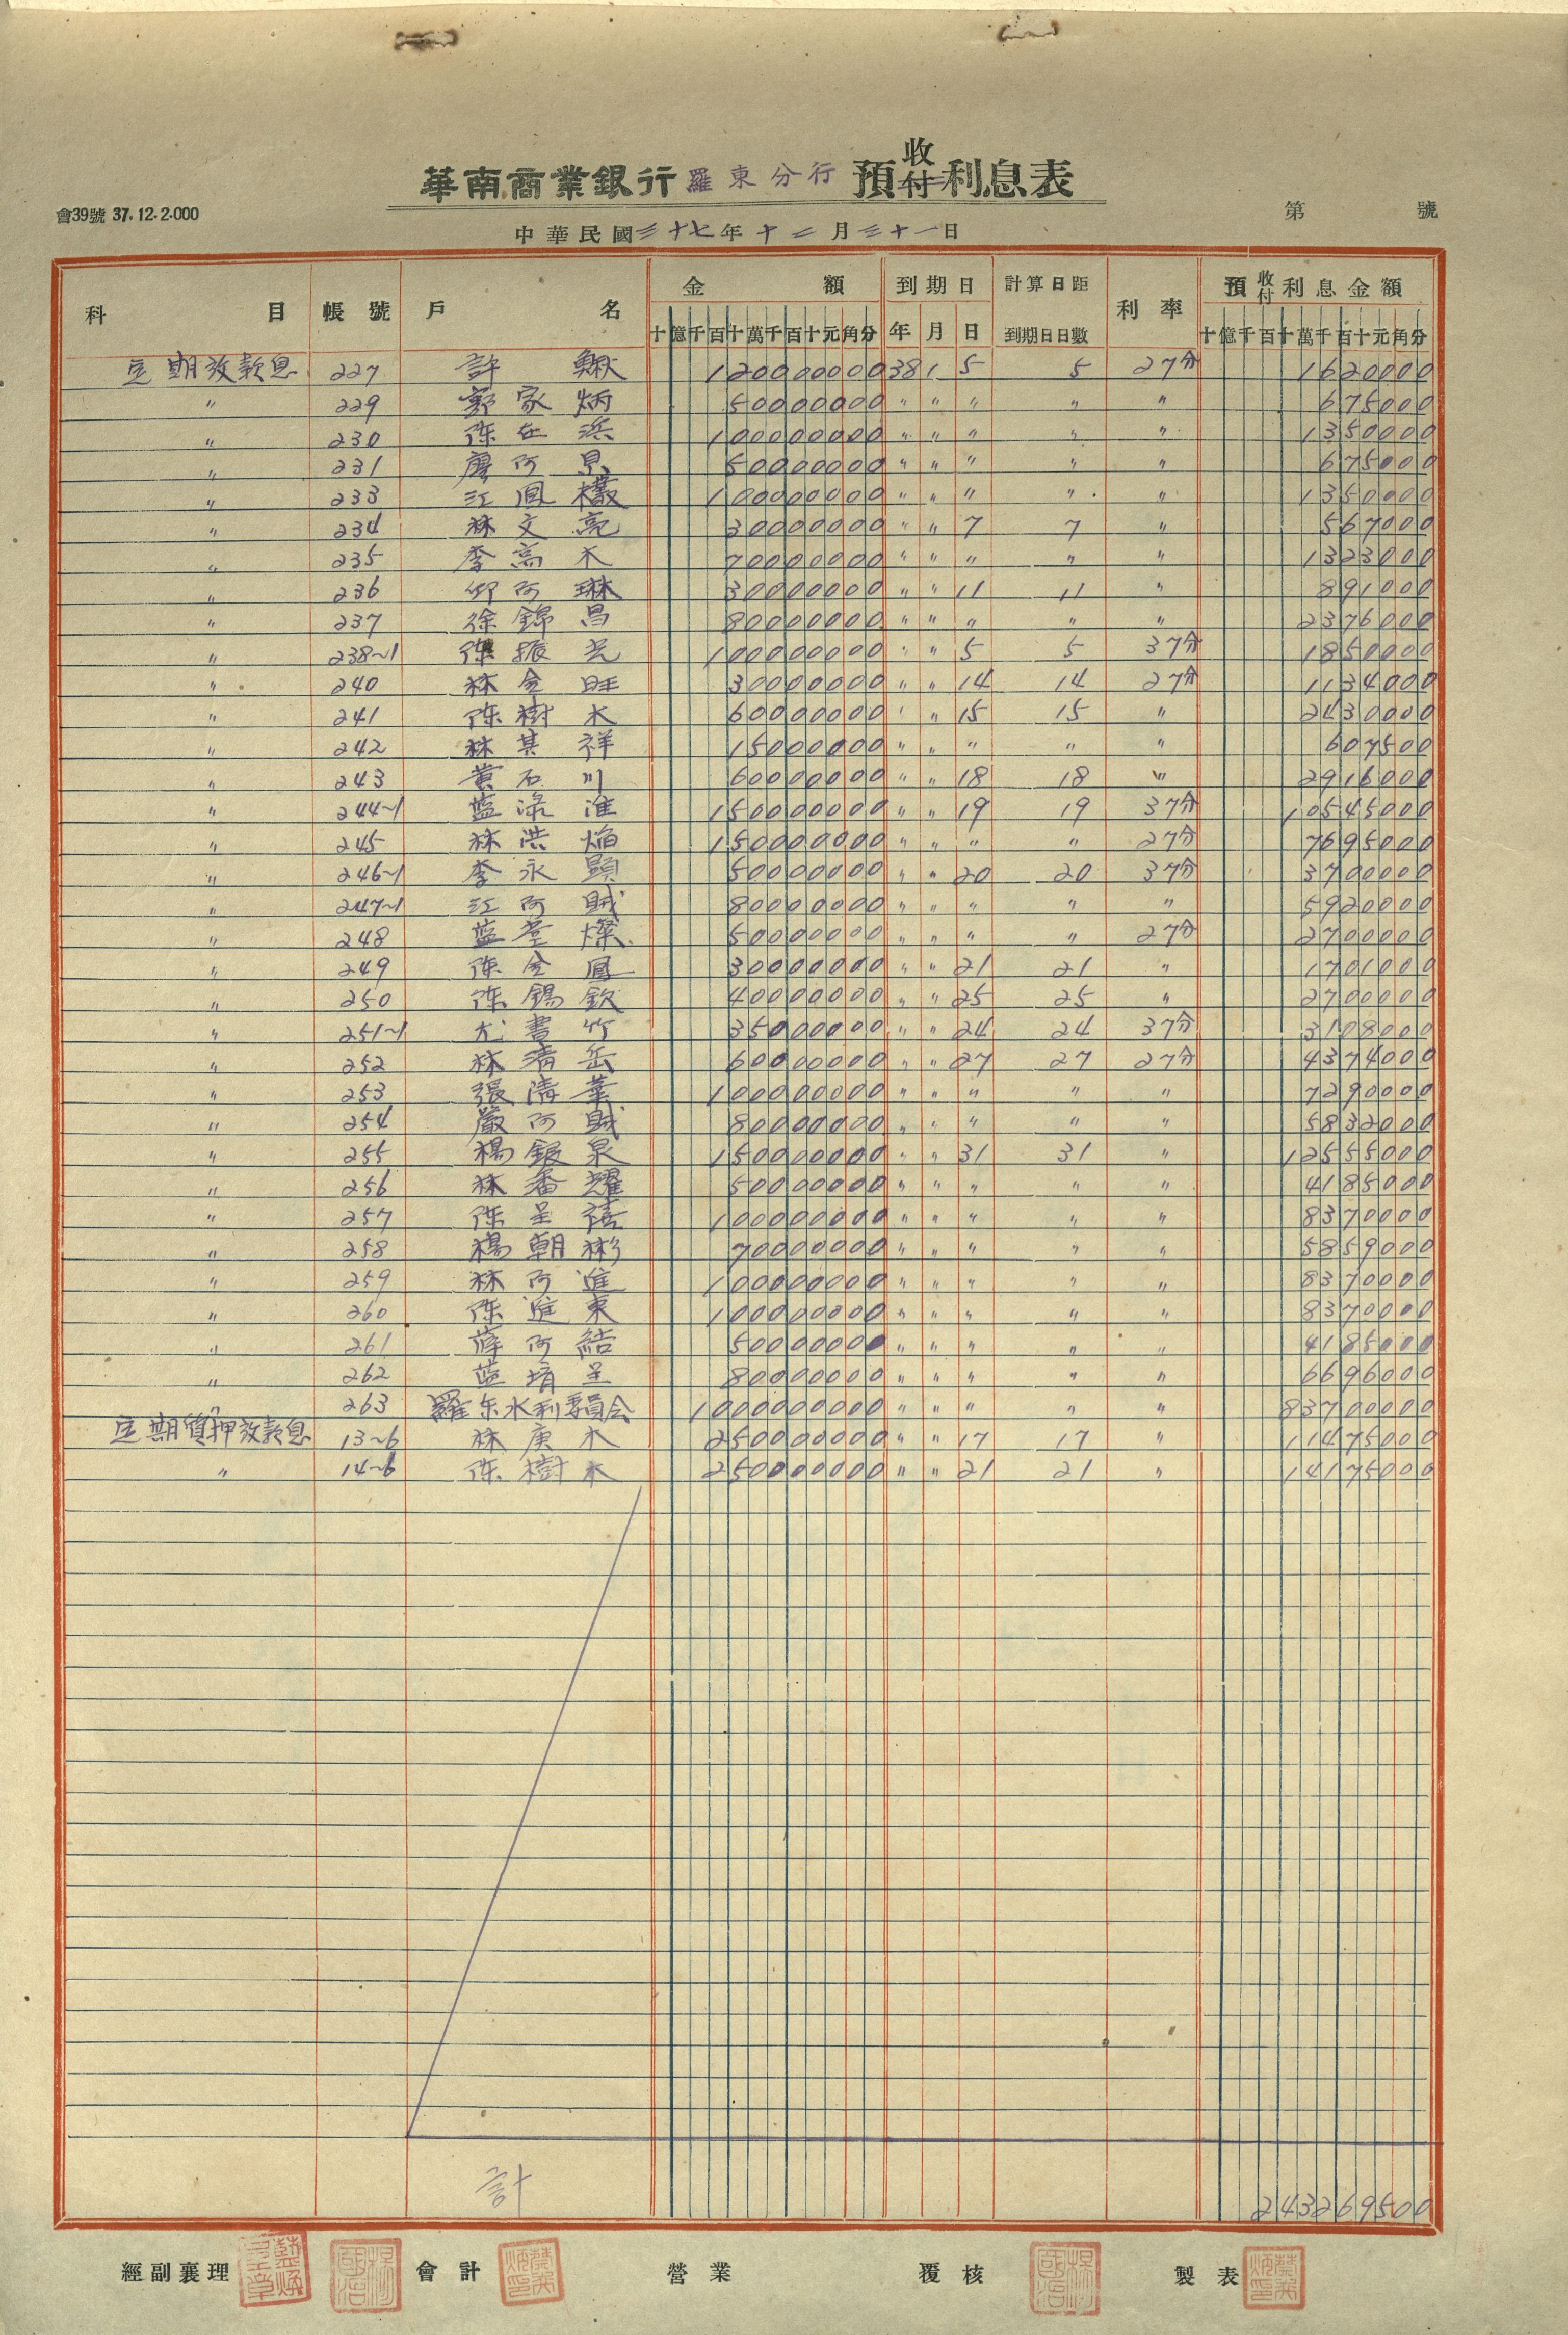 華南商業銀行 羅東分行 預收付利息表
會39號 37.12.2.000
第 號
中華民國三十七年十二月三十一日
科目 帳號 戶名 金額 到期日 計算日距到期日日數 利率 預收付利息金額
十億千百十萬千百十元角分 年 月 日 十億千百十萬千百十元角分
定期放款息 227 許 120000000 38 1 5 5 27分 1620000
〃 229 郭家炳 50000000 〃 〃 〃 〃 〃 675000
〃 230 陈在浜 100000000 〃 〃 〃 〃 〃 1350000
〃 231 廖阿 50000000 〃 〃 〃 〃 〃 675000
〃 233 江凰 100000000 〃 〃 〃 〃 〃 1350000
〃 234 林文亮 30000000 〃 〃 7 7 〃 567000
〃 235 李高木 70000000 〃 〃 〃 〃 〃 1323000
〃 236 邱阿琳 30000000 〃 〃 11 11 〃 891000
〃 237 徐錦昌 80000000 〃 〃 〃 〃 〃 2376000
〃 238~1 陈振光 100000000 〃 〃 5 5 37分 1850000
〃 240 林金旺 30000000 〃 〃 14 14 27分 1134000
〃 241 陈樹木 60000000 〃 〃 15 15 〃 2430000
〃 242 林其祥 15000000 〃 〃 〃 〃 〃 607500
〃 243 黄石川 60000000 〃 〃 18 18 〃 2916000
〃 244~1 蓝淮 150000000 〃 〃 19 19 37分 10545000
〃 245 林洪焰 150000000 〃 〃 〃 〃 27分 7695000
〃 246~1 李永顕 50000000 〃 〃 20 20 37分 3700000
〃 247~1 江阿賊 80000000 〃 〃 〃 〃 〃 5920000
〃 248 蓝堂燦 50000000 〃 〃 〃 〃 27分 2700000
〃 249 陈金凰 30000000 〃 〃 21 21 〃 1701000
〃 250 陈錫欽 40000000 〃 〃 25 25 〃 2700000
〃 251~1 尤書竹 35000000 〃 〃 24 24 37分 3108000
〃 252 林清岳 60000000 〃 〃 27 27 27分 4374000
〃 253 張清華 100000000 〃 〃 〃 〃 〃 7290000
〃 254 嚴阿賊 80000000 〃 〃 〃 〃 〃 5832000
〃 255 楊銀泉 150000000 〃 〃 31 31 〃 12555000
〃 256 林番耀 50000000 〃 〃 〃 〃 〃 4185000
〃 257 陈呈禧 100000000 〃 〃 〃 〃 〃 8370000
〃 258 楊朝彬 70000000 〃 〃 〃 〃 〃 5859000
〃 259 林阿進 100000000 〃 〃 〃 〃 〃 8370000
〃 260 陈進東 100000000 〃 〃 〃 〃 〃 8370000
〃 261 薛阿結 50000000 〃 〃 〃 〃 〃 4185000
〃 262 蓝堉呈 80000000 〃 〃 〃 〃 〃 6696000
〃 263 羅东水利委員会 1000000000 〃 〃 〃 〃 〃 83700000
定期質押放款息 13~6 林庚木 250000000 〃 〃 17 17 〃 11475000
〃 14~6 陈樹木 250000000 〃 〃 21 21 〃 14175000
計 243269500
經副襄理 會計 營業 覆核 製表